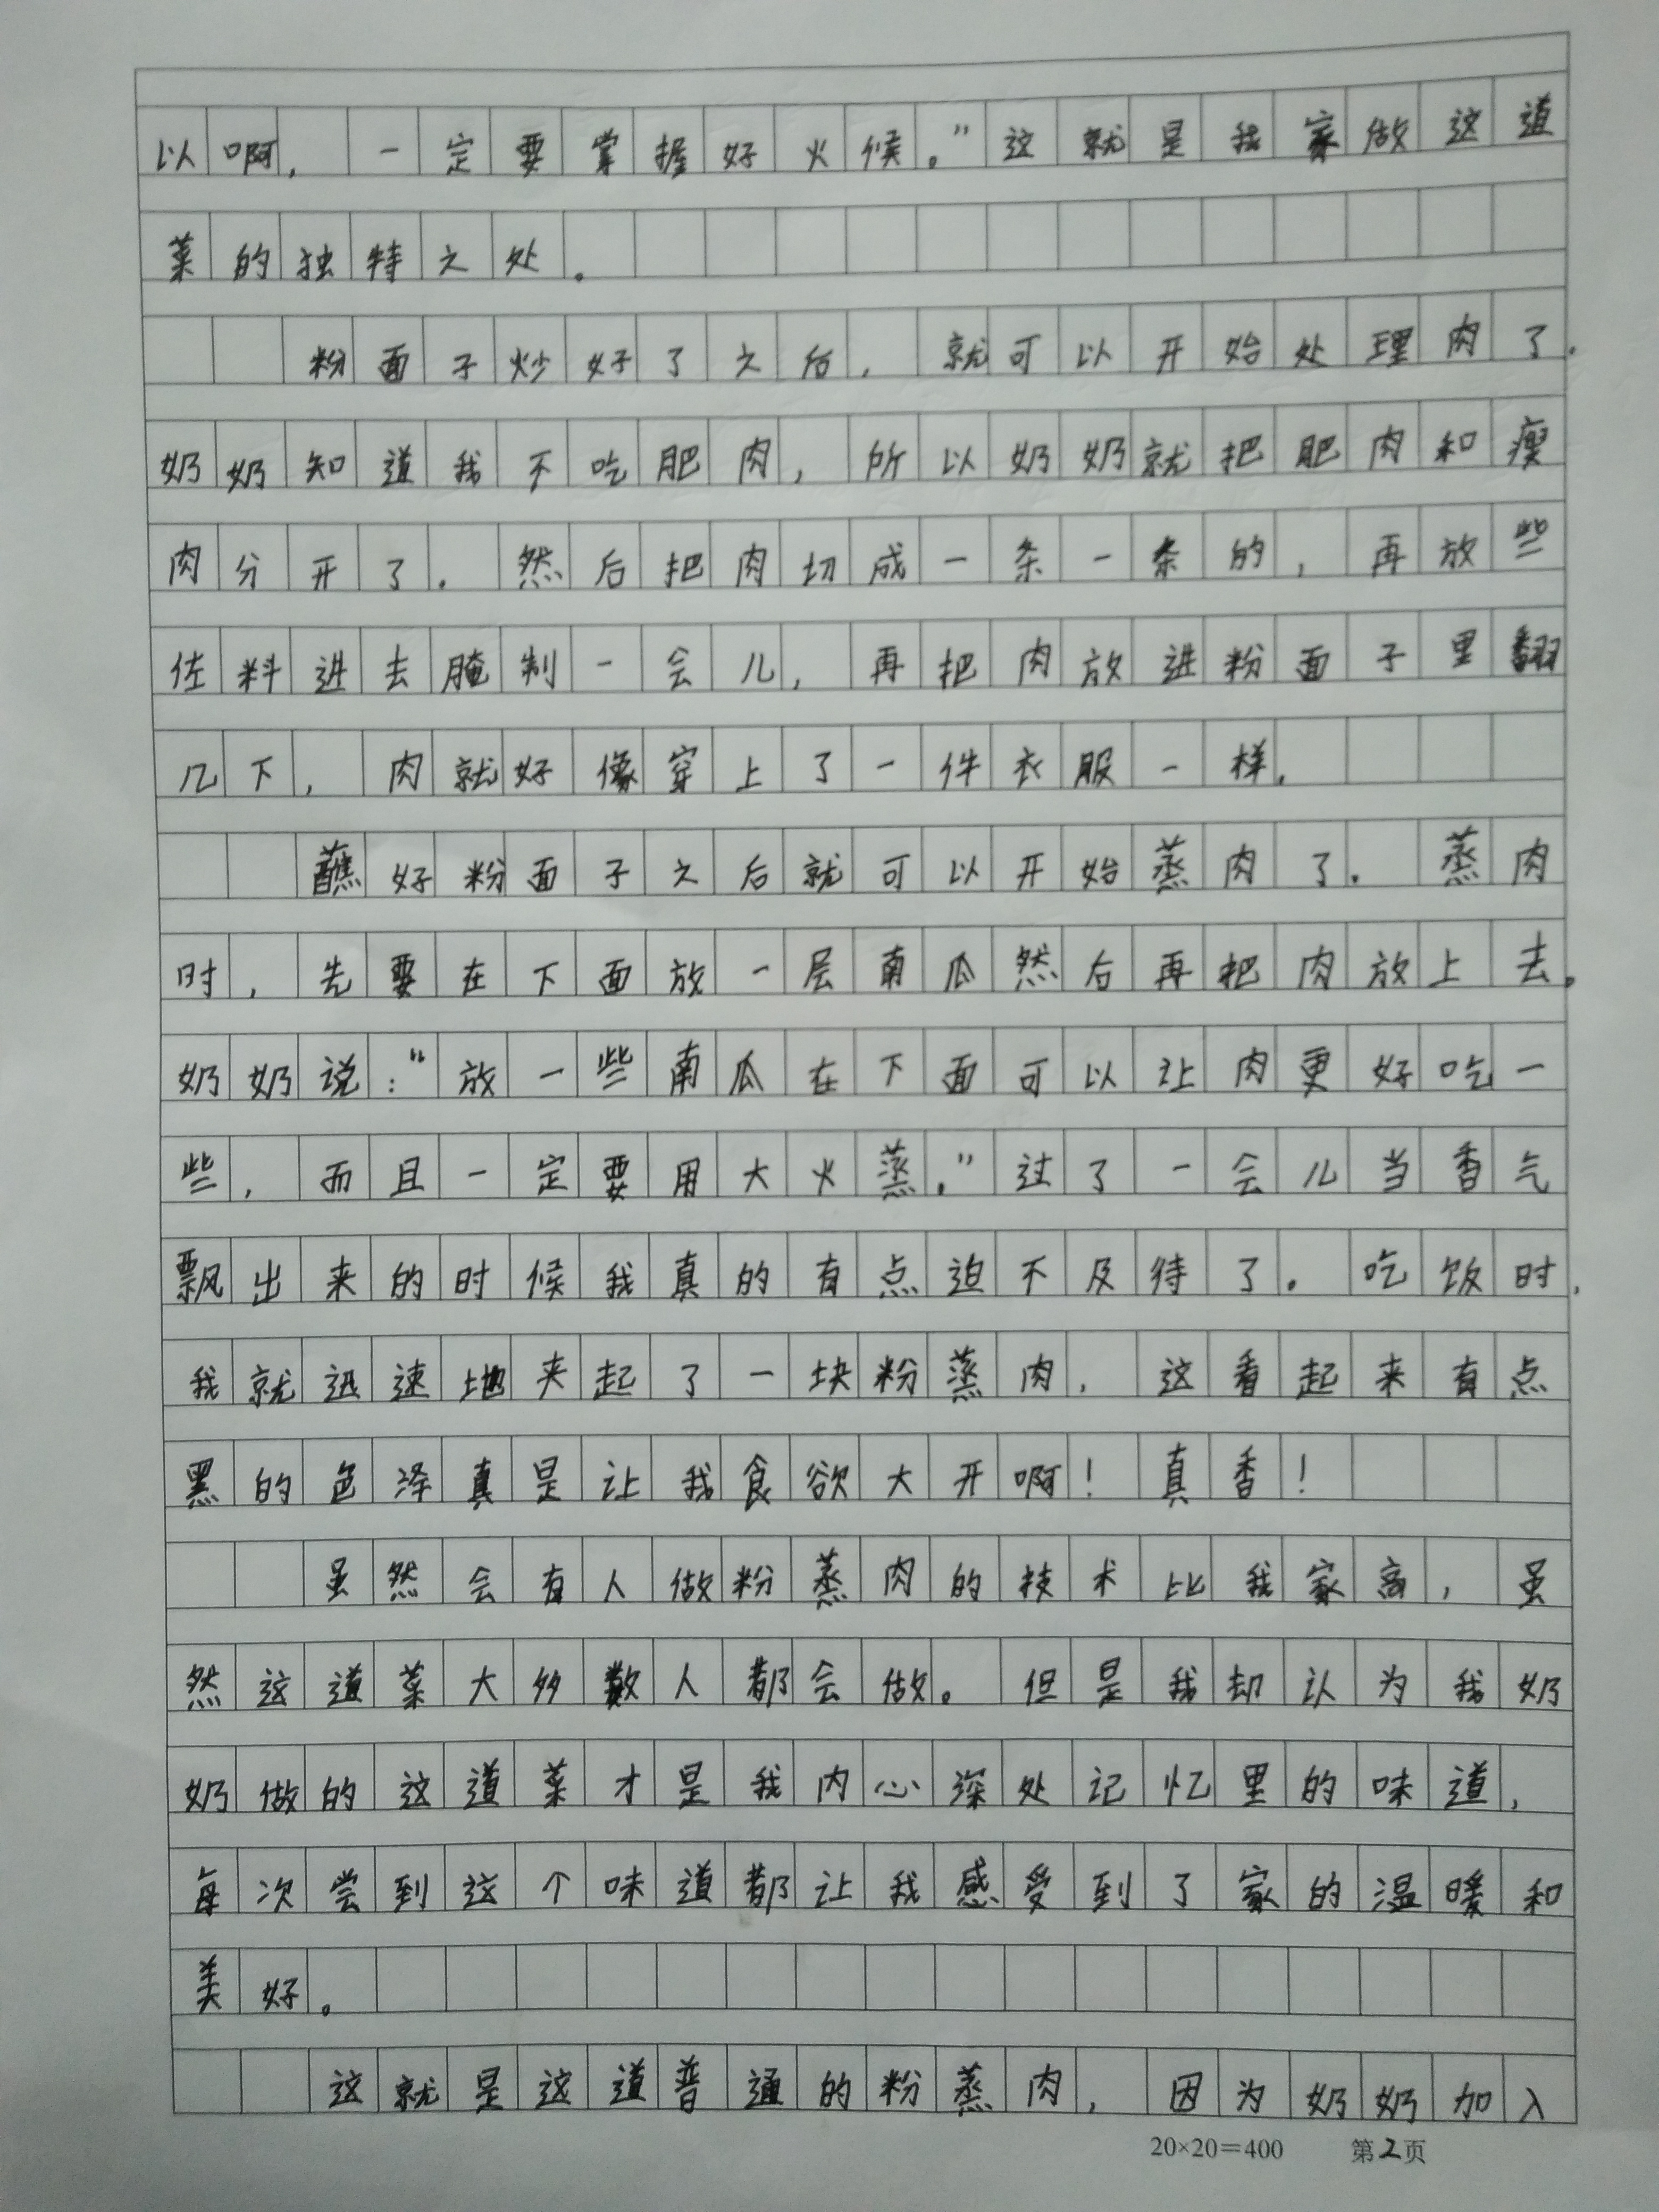 以啊，一定要掌握好火候。”这就是我家做这道
菜的独特之处。
粉面子炒好了之后，就可以开始处理肉了。
奶奶知道我不吃肥肉，所以奶奶就把肥肉和瘦
肉分开了。然后把肉切成一条一条的，再放些
佐料进去腌制一会儿，再把肉放进粉面子里翻
几下，肉就好像穿上了一件衣服一样。
蘸好粉面子之后就可以开始蒸肉了。蒸肉
时，先要在下面放一层南瓜然后再把肉放上去。
奶奶说：“放一些南瓜在下面可以让肉更好吃一
些，而且一定要用大火蒸。”过了一会儿当香气
飘出来的时候我真的有点迫不及待了。吃饭时，
我就迅速地夹起了一块粉蒸肉，这看起来有点
黑的色泽真是让我食欲大开啊！真香！
虽然会有人做粉蒸肉的技术比我家高，虽
然这道菜大多数人都会做。但是我却认为我奶
奶做的这道菜才是我内心深处记忆里的味道，
每次尝到这个味道都让我感受到了家的温暖和
美好。
这就是这道普通的粉蒸肉，因为奶奶加入
20×20＝400 第2页